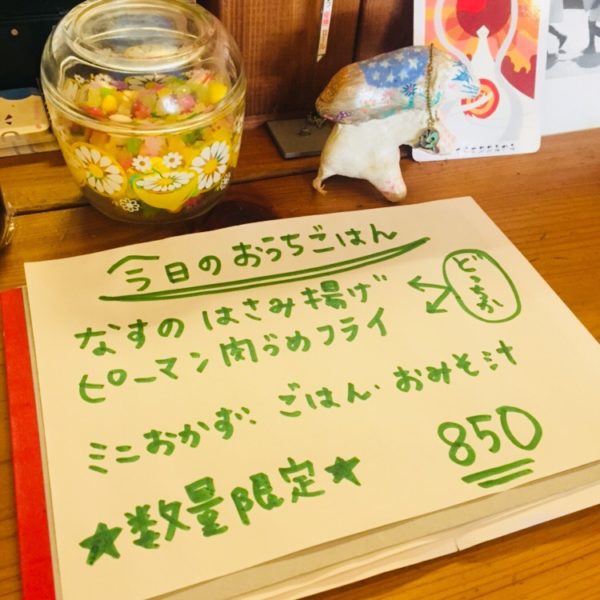 今日のおうちごはん
なすの はさみ揚げ
ピーマン肉づめフライ
どっちか
ミニおかず・ごはん・おみそ汁
850
★数量限定★